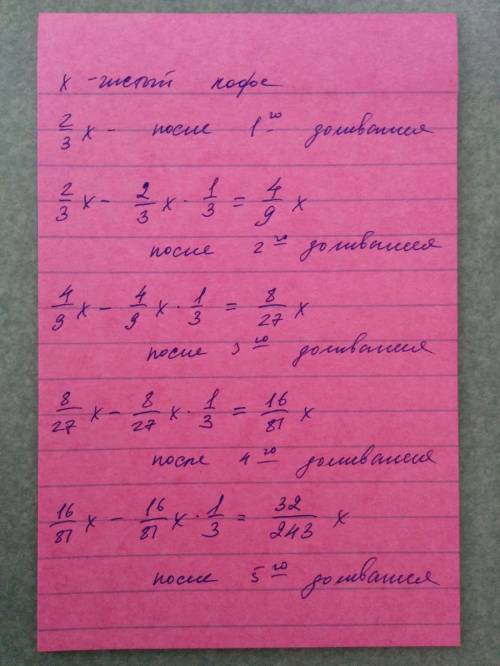 x - чистый кофе
2/3 x - после 1го доливания
2/3 x - 2/3 x · 1/3 = 4/9 x
после 2го доливания
4/9 x - 4/9 x · 1/3 = 8/27 x
после 3го доливания
8/27 x - 8/27 x · 1/3 = 16/81 x
после 4го доливания
16/81 x - 16/81 x · 1/3 = 32/243 x
после 5го доливания